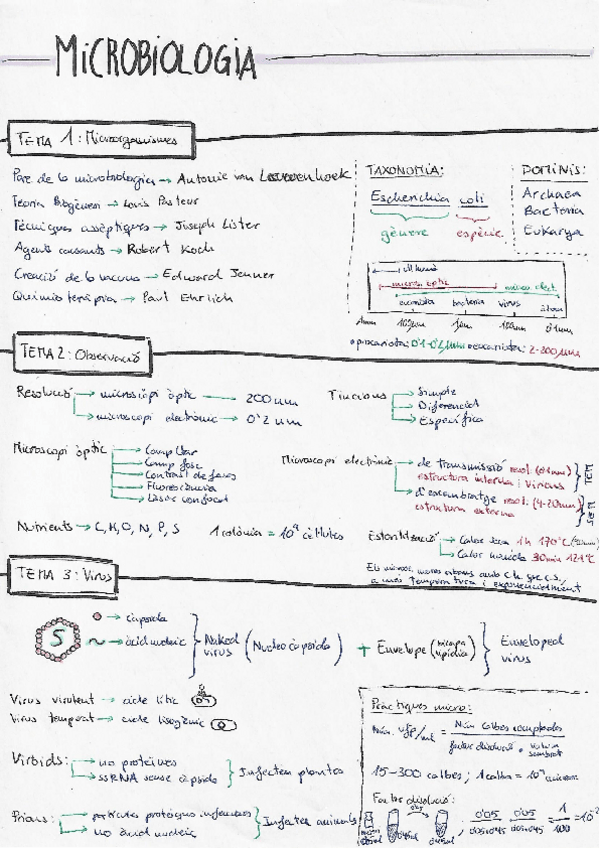 MICROBIOLOGIA
TEMA 1: Microorganismes
Pare de la microbiologia → Antonie van Leeuwenhoek
Teoria Biogènesi → Louis Pasteur
Tècniques assèptiques → Joseph Lister
Agents causants → Robert Koch
Creació de la vacuna → Edward Jenner
Quimioteràpia → Paul Ehrlich
TAXONOMIA:
Escherichia coli
gènere espècie
DOMINIS:
Archaea
Bacteria
Eukarya
ull humà
micros. òptic micros. elect.
eucariota bacteria virus àtom
100µm 1µm 100nm 0'1nm
procariota: 0'1-0'2µm eucariota: 2-200µm
TEMA 2: Observació
Resolució → microscòpi òptic → 200nm
→ microscopi electrònic → 0'2nm
Tincions → Simple
→ Diferencial
→ Específica
Microscopi òptic → Camp clar
→ Camp fosc
→ Contrast de fases
→ Fluorescència
→ Làser confocal
Microscopi electrònic → de transmissió resol. (0'1nm) TEM
estructura interna i virus
→ d'escombratge resol. (4-20nm) SEM
estructura externa
Nutrients → C, H, O, N, P, S
1 colònia = 10⁹ cèl·lules
Esterilització → Calor sec 1h 170°C
→ Calor humida 30min 121°C
a més temperatura i exponencialment
TEMA 3: Virus
S
→ càpsida
→ àcid nucleic
Naked virus (Nucleocàpsida) + Envelope (lipídica) Enveloped virus
Virus virulent → cicle lític
Virus temperat → cicle lisogènic
Viroids: → no proteïnes
→ ssRNA sense càpsida
Infecten plantes
Prions: → partícules protèiques infeccioses
→ no àcid nucleic
Infecten animals
Pràctiques micro:
Núm. ufp/ml = Núm calbes comptades
factor dilució · volum sembrat
15-300 calbes; 1 calba = 10⁹
Factor dilució:
0'05 0'05 1
0'05+0'45 0'05+0'45 100 = 10⁻²